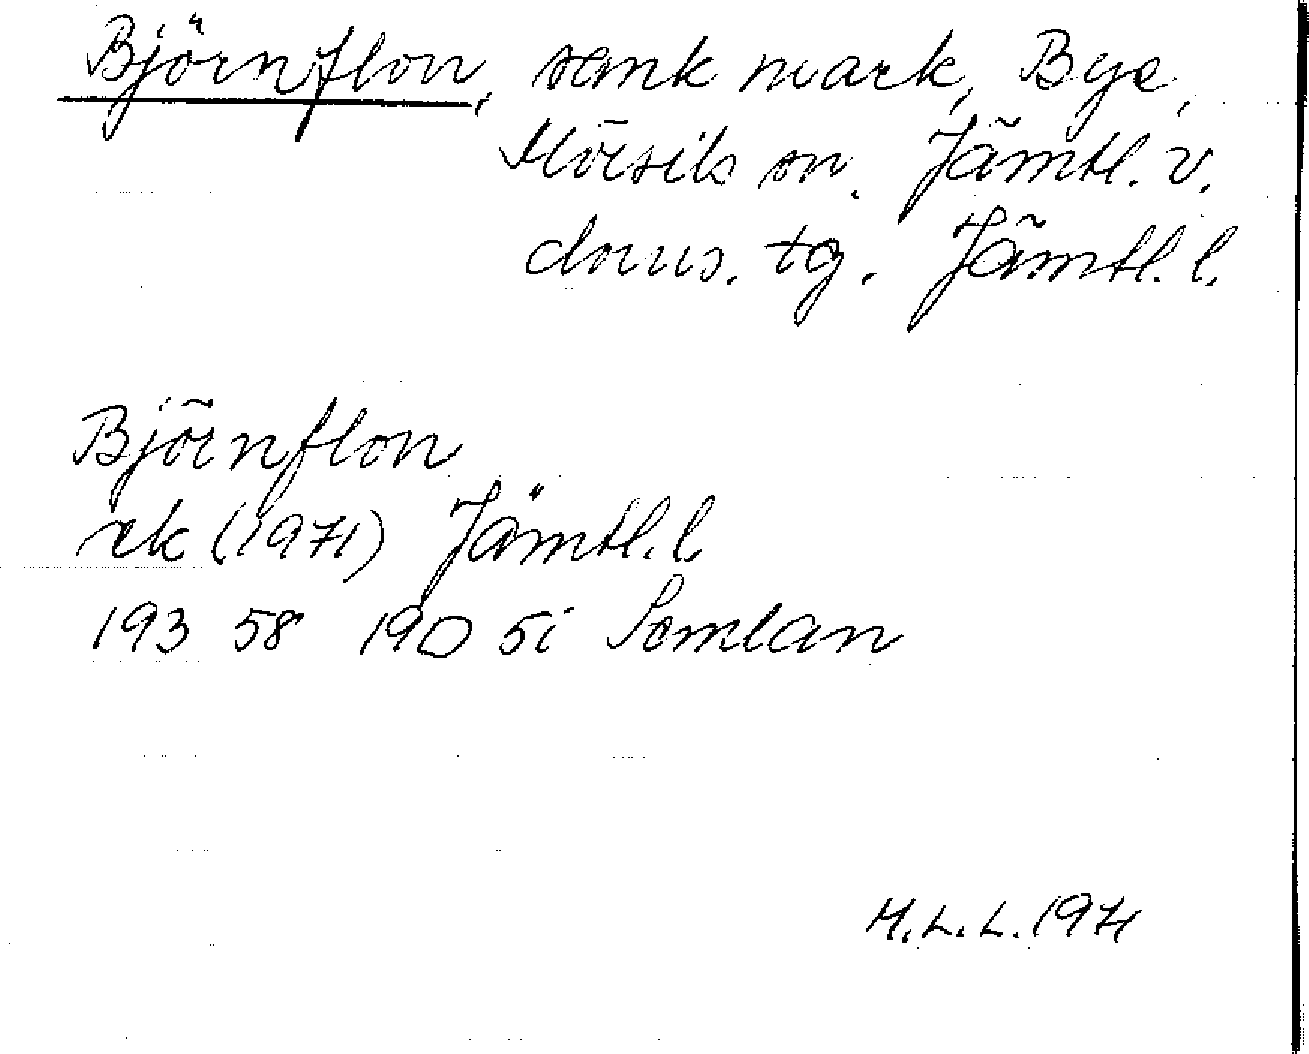 Björnflon, sank mark, Bye,
Mörsils sn. Jämtl. v.
doms. tg. Jämtl. l.
Björnflon
ek (1971) Jämtl. l.
193 58 190 5i Somlan
M.L.L. 1971